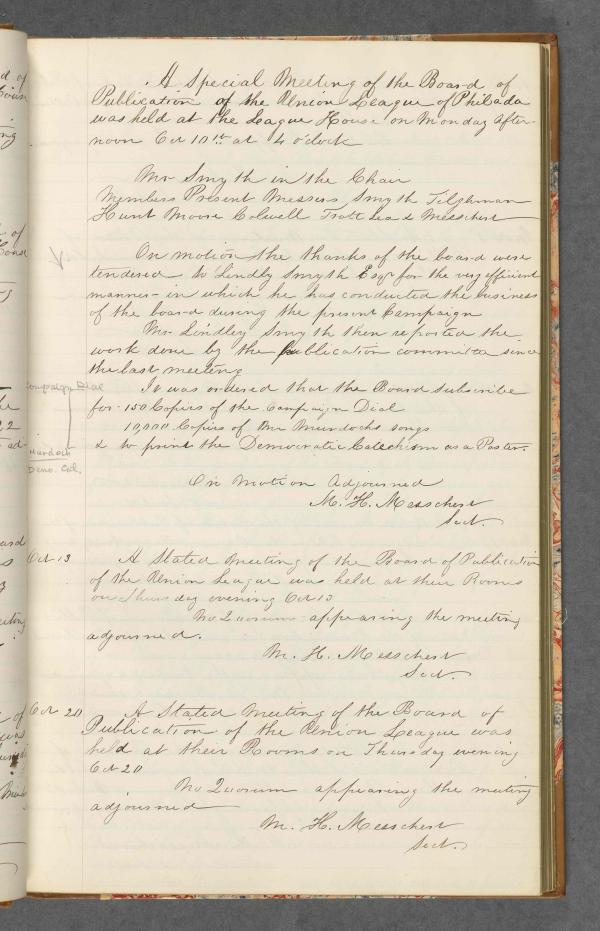 A Special Meeting of the Board of
Publication of the Union League of Philada
was held at the League House on Monday after-
noon Oct 10th at 4 o'clock
Mr Smyth in the Chair
Members Present Messrs Smyth Tilghman
Hunt Moore Colwell Trott Lea & Messchert
On motion the thanks of the board were
tendered to Lindly Smyth Esqr for the very efficient
manner in which he has conducted the business
of the board during the present Campaign
Mr Lindley Smyth then reported the
work done by the publication committee since
the last meeting
It was ordered that the Board subscribe
Campaign Dial
for 150 Copies of the Campaign Dial
10,000 Copies of Mr Murdochs songs
& to print the Democratic Catechism as a Poster.
Murdoch
Demo. Cat.
On Motion Adjourned
M. H. Messchert
Sect.
Oct 13
A Stated Meeting of the Board of Publication
of the Union League was held at their Rooms
on Thursday evening Oct 13
No Quorum appearing the meeting
adjourned.
M. H. Messchert
Sect.
Oct 20
A Stated Meeting of the Board of
Publication of the Union League was
held at their Rooms on Thursday evening
Oct 20
No Quorum appearing the meeting
adjourned
M. H. Messchert
Sect.